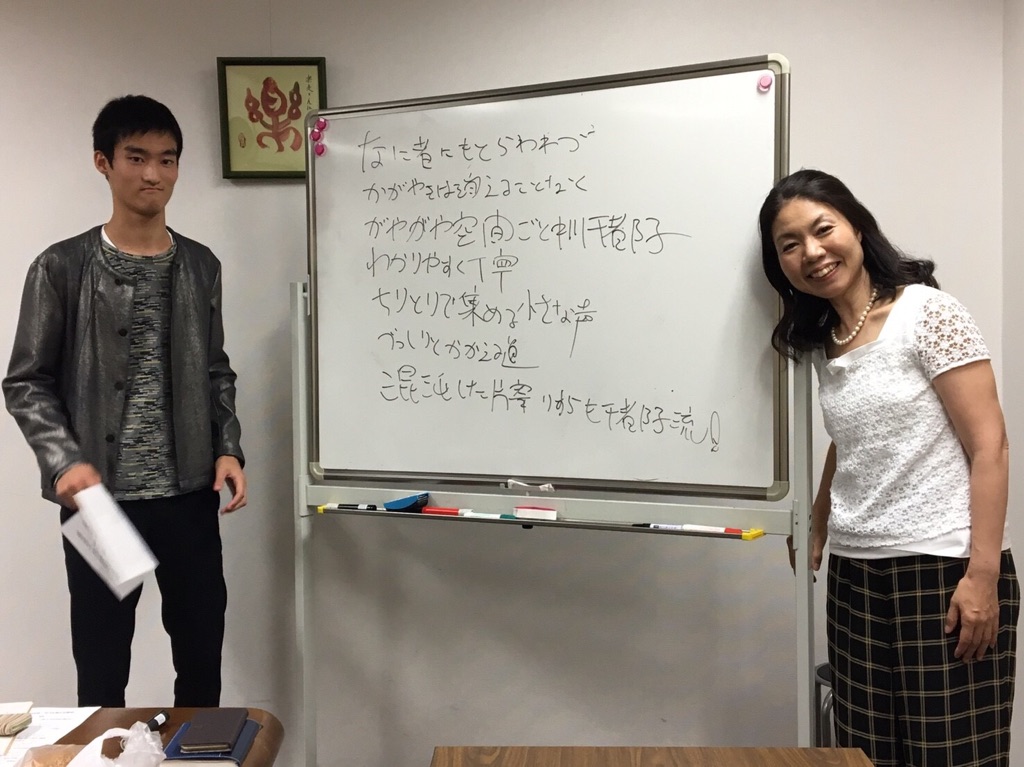 楽
なに者にもとらわれづ
かがやきは消えることなく
がやがや空間ごと中川千都子
わかりやすく丁寧
ちりとりで集める小さな声
づっしりとかかえる道
混沌した片寄りすらも千都子流!